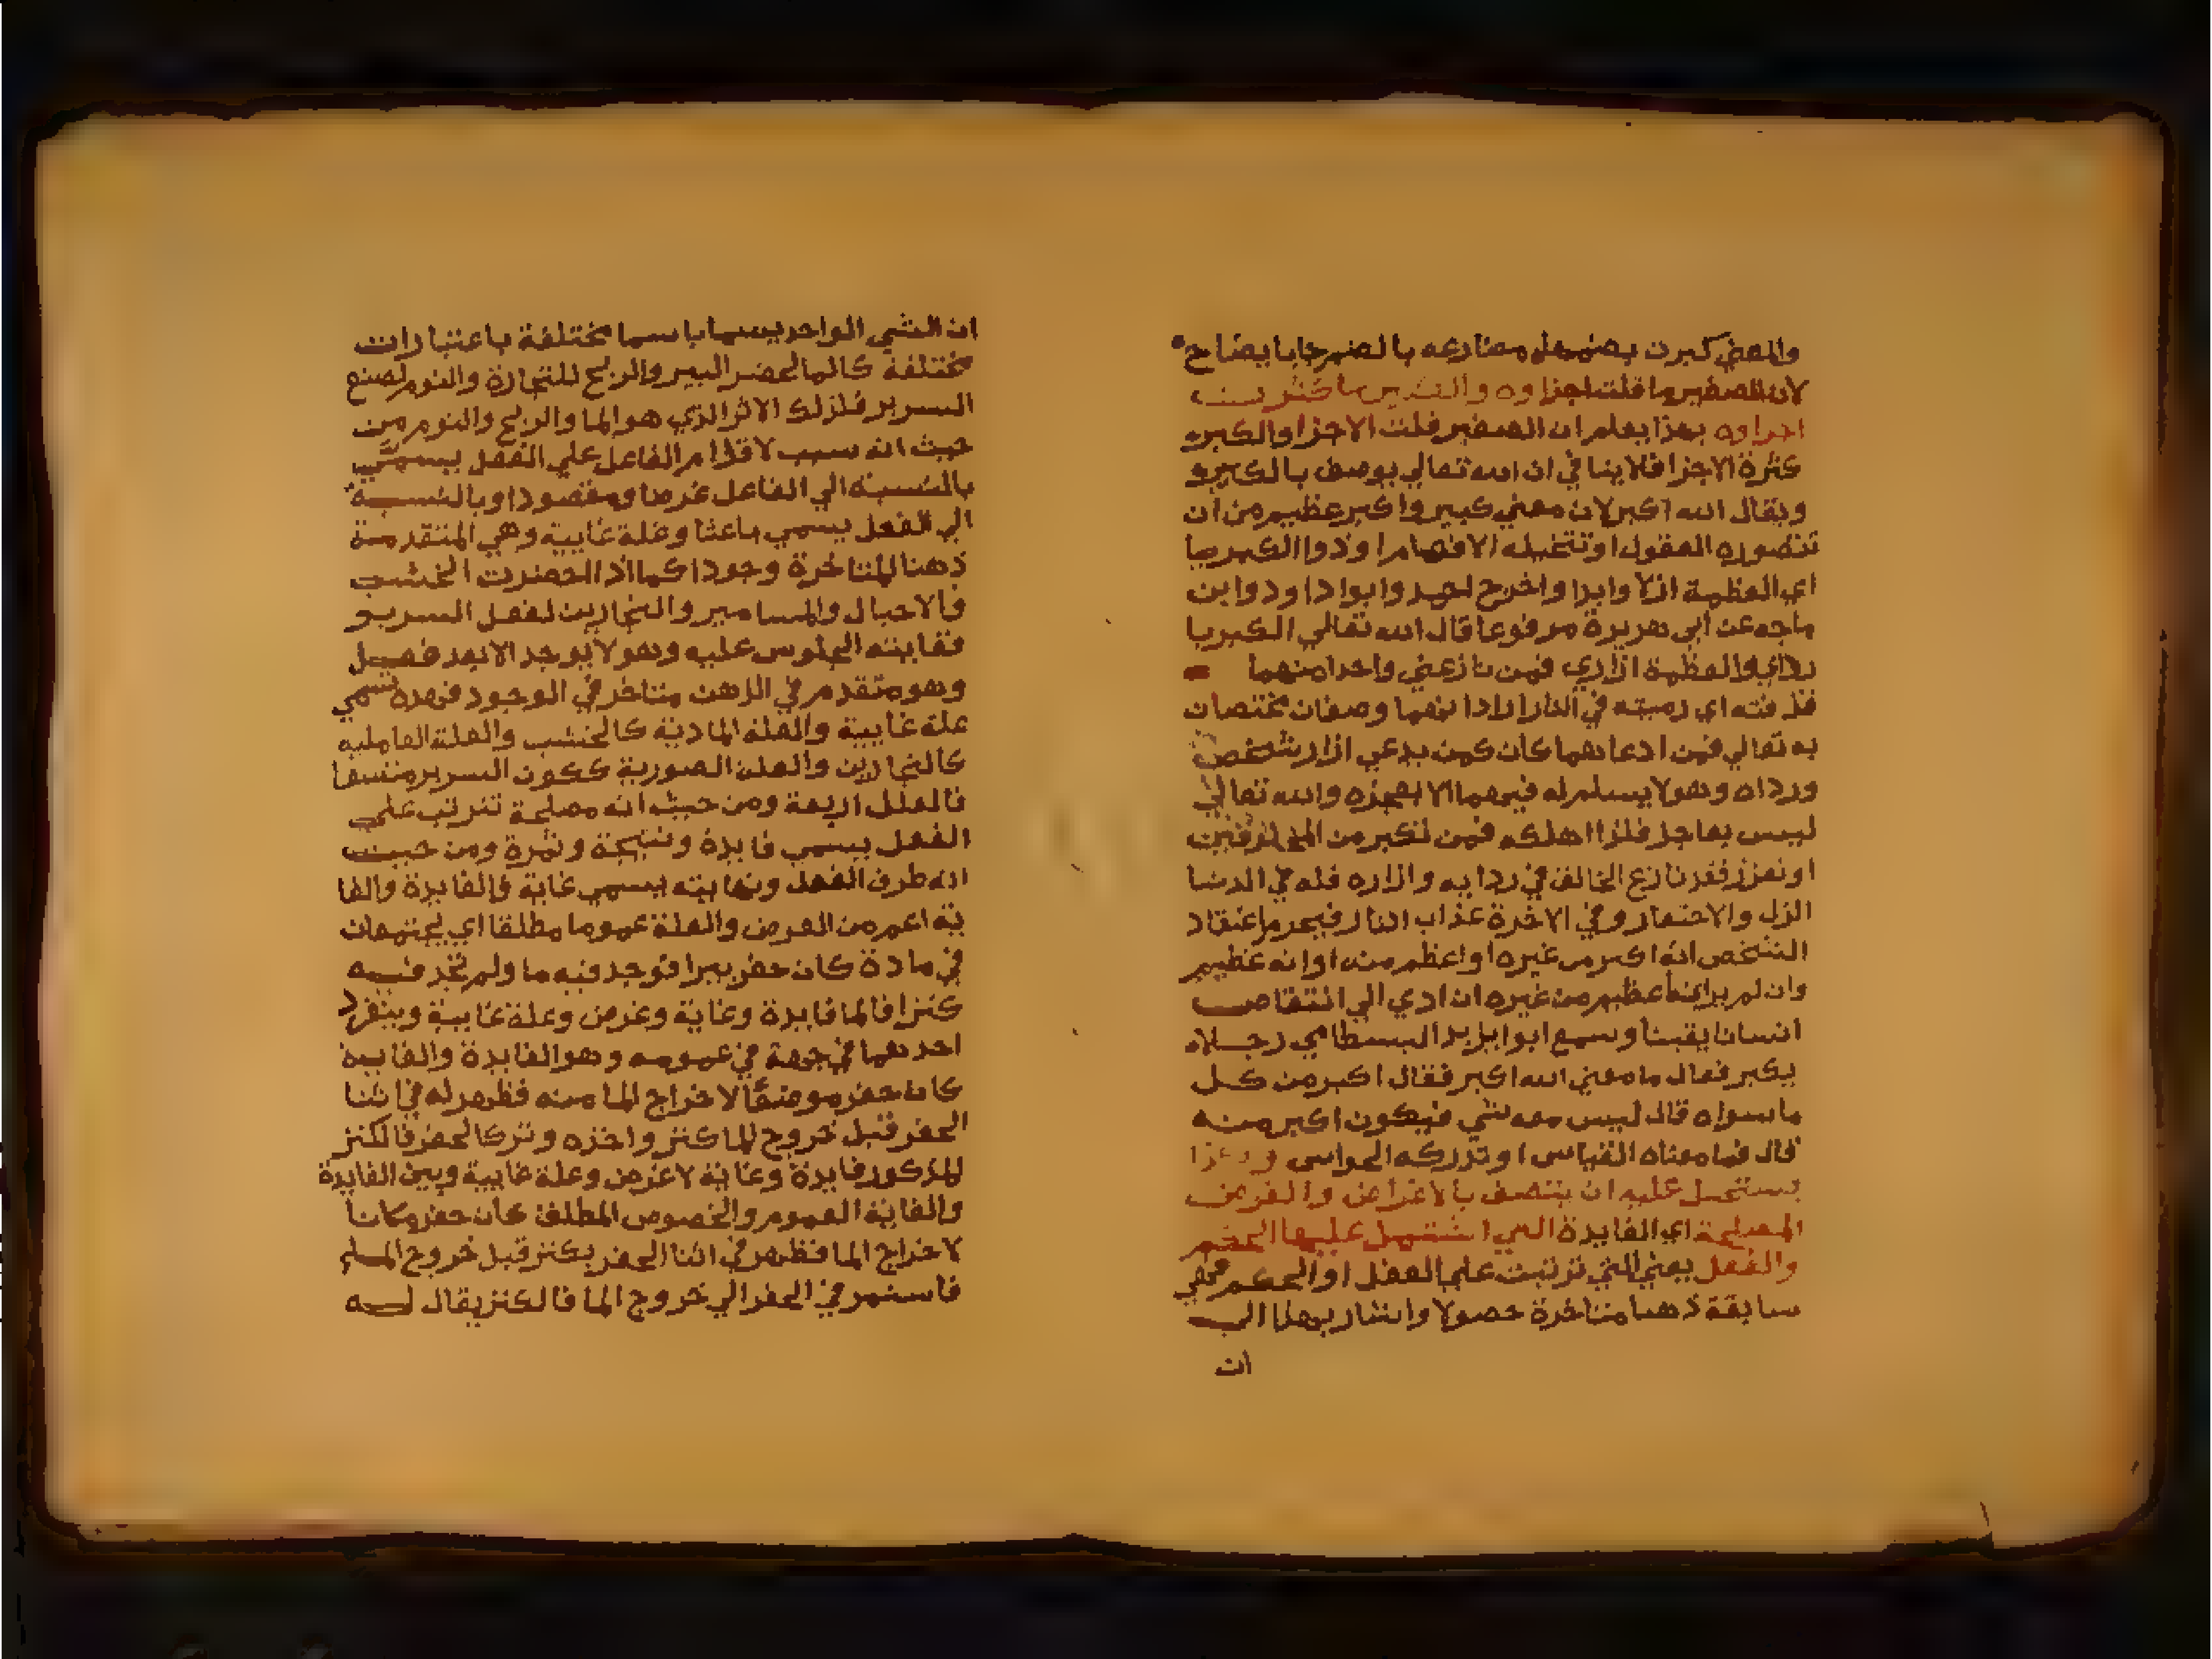 لان الصغير ما قلت اجزاوه والكبير ما كثرت
اجزاوه بهذا يعلم ان الصغير قلت الاجزا والكبر
كثرة الاجزا فلا ينافي ان الله تعالي يوصف بالكبر و
ويقال الله اكبر لان معني كبير واكبر عظيم من ان
تتصوره العقول او تتخيله الافهام او ذوا الكبريا
اي العظمة ازلا وابدا واخرج احمد وابوا داود وابن
ماجه عن ابي هريرة مرفوعا قال الله تعالي الكبريا
رداي والعظمة ازاري فمن نازعني واحدا منهما
قذفته اي رميته في النار اذا انهما وصفان مختصان
به تعالي فمن ادعاهما كان كمن يدعي ازار شخص
ورداه وهو لا يسلم له فيهما الا بعجزه والله تعالي
ليس بعاجز فلذا اهلكه فمن تكبر من المخلوقين
او تعزز فقد نازع الخالق في ردايه وازاره فله في الدنيا
الذل والاحتقار وفي الاخرة عذاب النار فيحرم اعتقاد
الشخص انه اكبر من غيره او اعظم منه او انه عظيم
وان لم ير انه اعظم من غيره ان ادي الي انتقاص
انسان يقينا وسمع ابوا يزيد البسطامي رجلا
يكبر فقال ما معني الله اكبر فقال اكبر من كل
ما سواه قال ليس معه شي فيكون اكبر منه
قال فما معناه القياس او تدركه الحواس وهذا
يستحيل عليه ان يتصف بالاغراض والغرض
المصلحة اي الفايدة التي اشتمل عليها الحكم
والفعل يعني التي ترتبت علي الفعل او الحكم فهي
سابقة ذهنا متاخرة حصولا واشار بهذا الي
ان
ان الشي الواحد يسما باسما مختلفة باعتبارات
مختلفة كالما لحفر البير والربح للتجارة والنوم لصنع
السرير فلذلك الاثر الذي هو الما والربح والنوم من
حيث انه سبب لاقدام الفاعل علي الفعل يسمي
بالنسبة الي الفاعل غرضا ومقصودا وبالنسبة
الي الفعل يسمي باعثا وعلة غايية وهي المتقدمة
ذهنا المتاخرة وجودا كما اذا احضرت الخشب
والاحبال والمسامير والنجارين لفعل السرير
فغايته الجلوس عليه وهو لا يوجد الا بعد فعل
وهو متقدم في الذهن متاخر في الوجود فهذه تسمي
علة غايية والعلة المادية كالخشب والعلة الفاعلية
كالنجارين والعلة الصورية ككون السرير متسقا
فالعلل اربعة ومن حيث انه مصلحة تترتب علي
الفعل يسمي فايدة ونتيجة وثمرة ومن حيث
انه طرف الفعل ونهايته يسمي غاية والفايدة والغا
ية اعم من الغرض والعلة عموما مطلقا اي يجتمعان
في مادة كان حفر بيرا فوجد فيه ما ولم تجد فيه
كنزا فالما فايدة وغاية وغرض وعلة غايية وينفرد
احدهما في جهة في عمومه وهو الفايدة والغاية
كان حفر موضعا لاخراج الما منه فظهر له في اثنا
الحفر قبل خروج الما كنز واخذه وترك الحفر فالكنز
المذكور فايدة وغاية لا غرض وعلة غايية وبين الفايدة
والغاية العموم والخصوص المطلق كان حفر مكانا
لاخراج الما فظهر في اثنا الحفر بكنز قبل خروج الما
فاستمر في الحفر الي خروج الما فالكنز يقال له